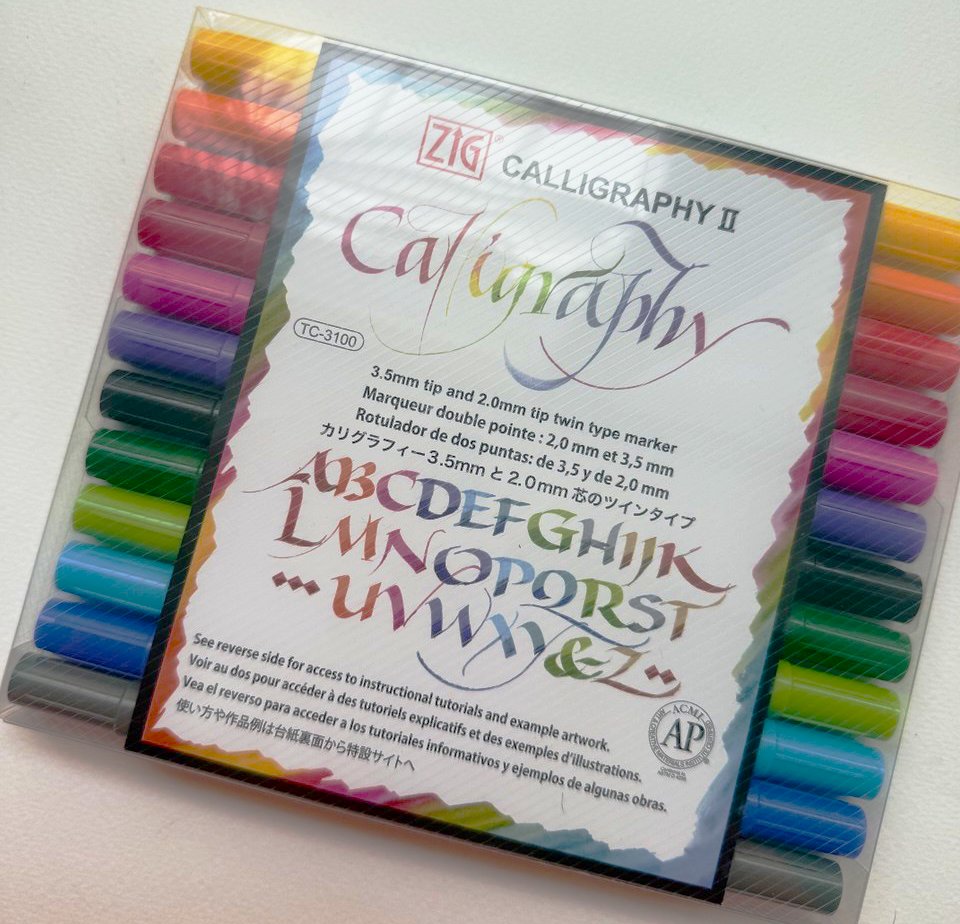 ZIG® CALLIGRAPHY II
Calligraphy
TC-3100
3.5mm tip and 2.0mm tip twin type marker
Marqueur double pointe : 2,0 mm et 3,5 mm
Rotulador de dos puntas: de 3,5 y de 2,0 mm
カリグラフィー3.5mmと2.0mm 芯のツインタイプ
ABCDEFGHIJK
LMNOPQRST
UVWXY&Z
See reverse side for access to instructional tutorials and example artwork.
Voir au dos pour accéder à des tutoriels explicatifs et des exemples d'illustrations.
Vea el reverso para acceder a los tutoriales informativos y ejemplos de algunas obras.
使い方や作品例は台紙裏面から特設サイトへ
ACMI
AP